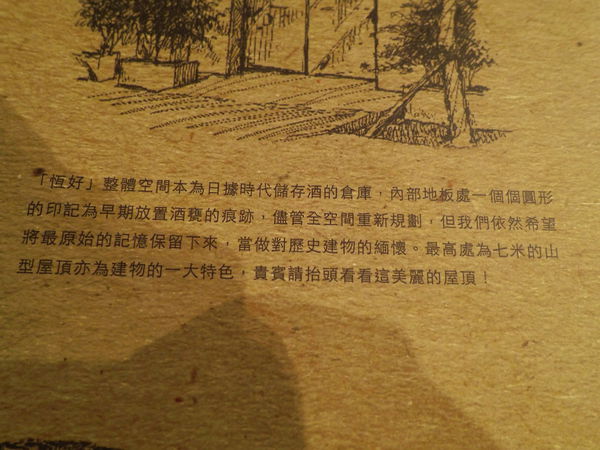 「恆好」整體空間本為日據時代儲存酒的倉庫，內部地板處一個個圓形
的印記為早期放置酒甕的痕跡，儘管全空間重新規劃，但我們依然希望
將最原始的記憶保留下來，當做對歷史建物的緬懷。最高處為七米的山
型屋頂亦為建物的一大特色，貴賓請抬頭看看這美麗的屋頂！